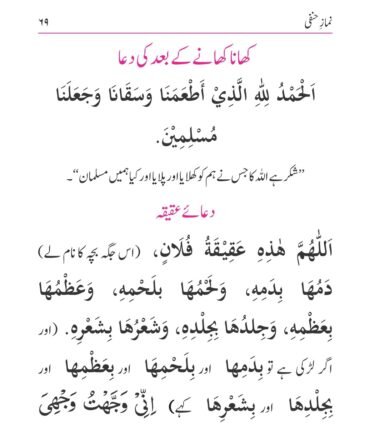 نمازِ حنفی ۶۹
کھانا کھانے کے بعد کی دعا
اَلْحَمْدُ لِلّٰهِ الَّذِيْ اَطْعَمَنَا وَسَقَانَا وَجَعَلَنَا
مُسْلِمِيْنَ.
”شکر ہے اللہ کا جس نے ہم کو کھلایا اور پلایا اور کیا ہمیں مسلمان“۔
دعائے عقیقہ
اَللّٰهُمَّ هٰذِهٖ عَقِيْقَةُ فُلَانٍ، (اس جگہ بچہ کا نام لے)
دَمُهَا بِدَمِهٖ، وَلَحْمُهَا بِلَحْمِهٖ، وَعَظْمُهَا
بِعَظْمِهٖ، وَجِلْدُهَا بِجِلْدِهٖ، وَشَعْرُهَا بِشَعْرِهٖ. (اور
اگر لڑکی ہے تو بِدَمِها اور بِلَحْمِها اور بِعَظْمِها اور
بِجِلْدِهَا اور بِشَعْرِهَا کہے) اِنِّيْ وَجَّهْتُ وَجْهِيَ